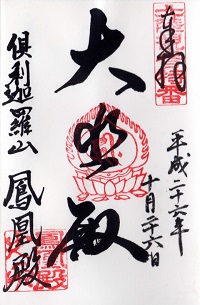 奉拝
平成二十六年
十月二十六日
大 殿
倶利迦羅山 鳳凰殿